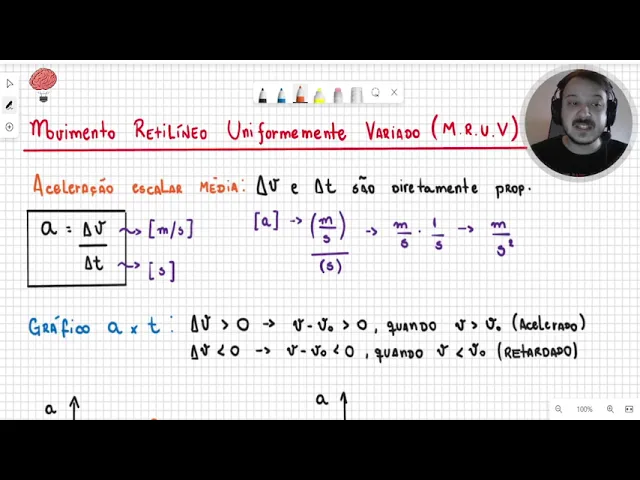 Movimento Retilíneo Uniformemente Variado (M.R.U.V)
Aceleração escalar média: Δv e Δt são diretamente prop.
a = Δv/Δt
→ [m/s]
→ [s]
[a] → (m/s)/(s) → m/s · 1/s → m/s²
Gráfico a x t: Δv > 0 → v - v₀ > 0, quando v > v₀ (Acelerado)
Δv < 0 → v - v₀ < 0, quando v < v₀ (Retardado)
a
a
100%